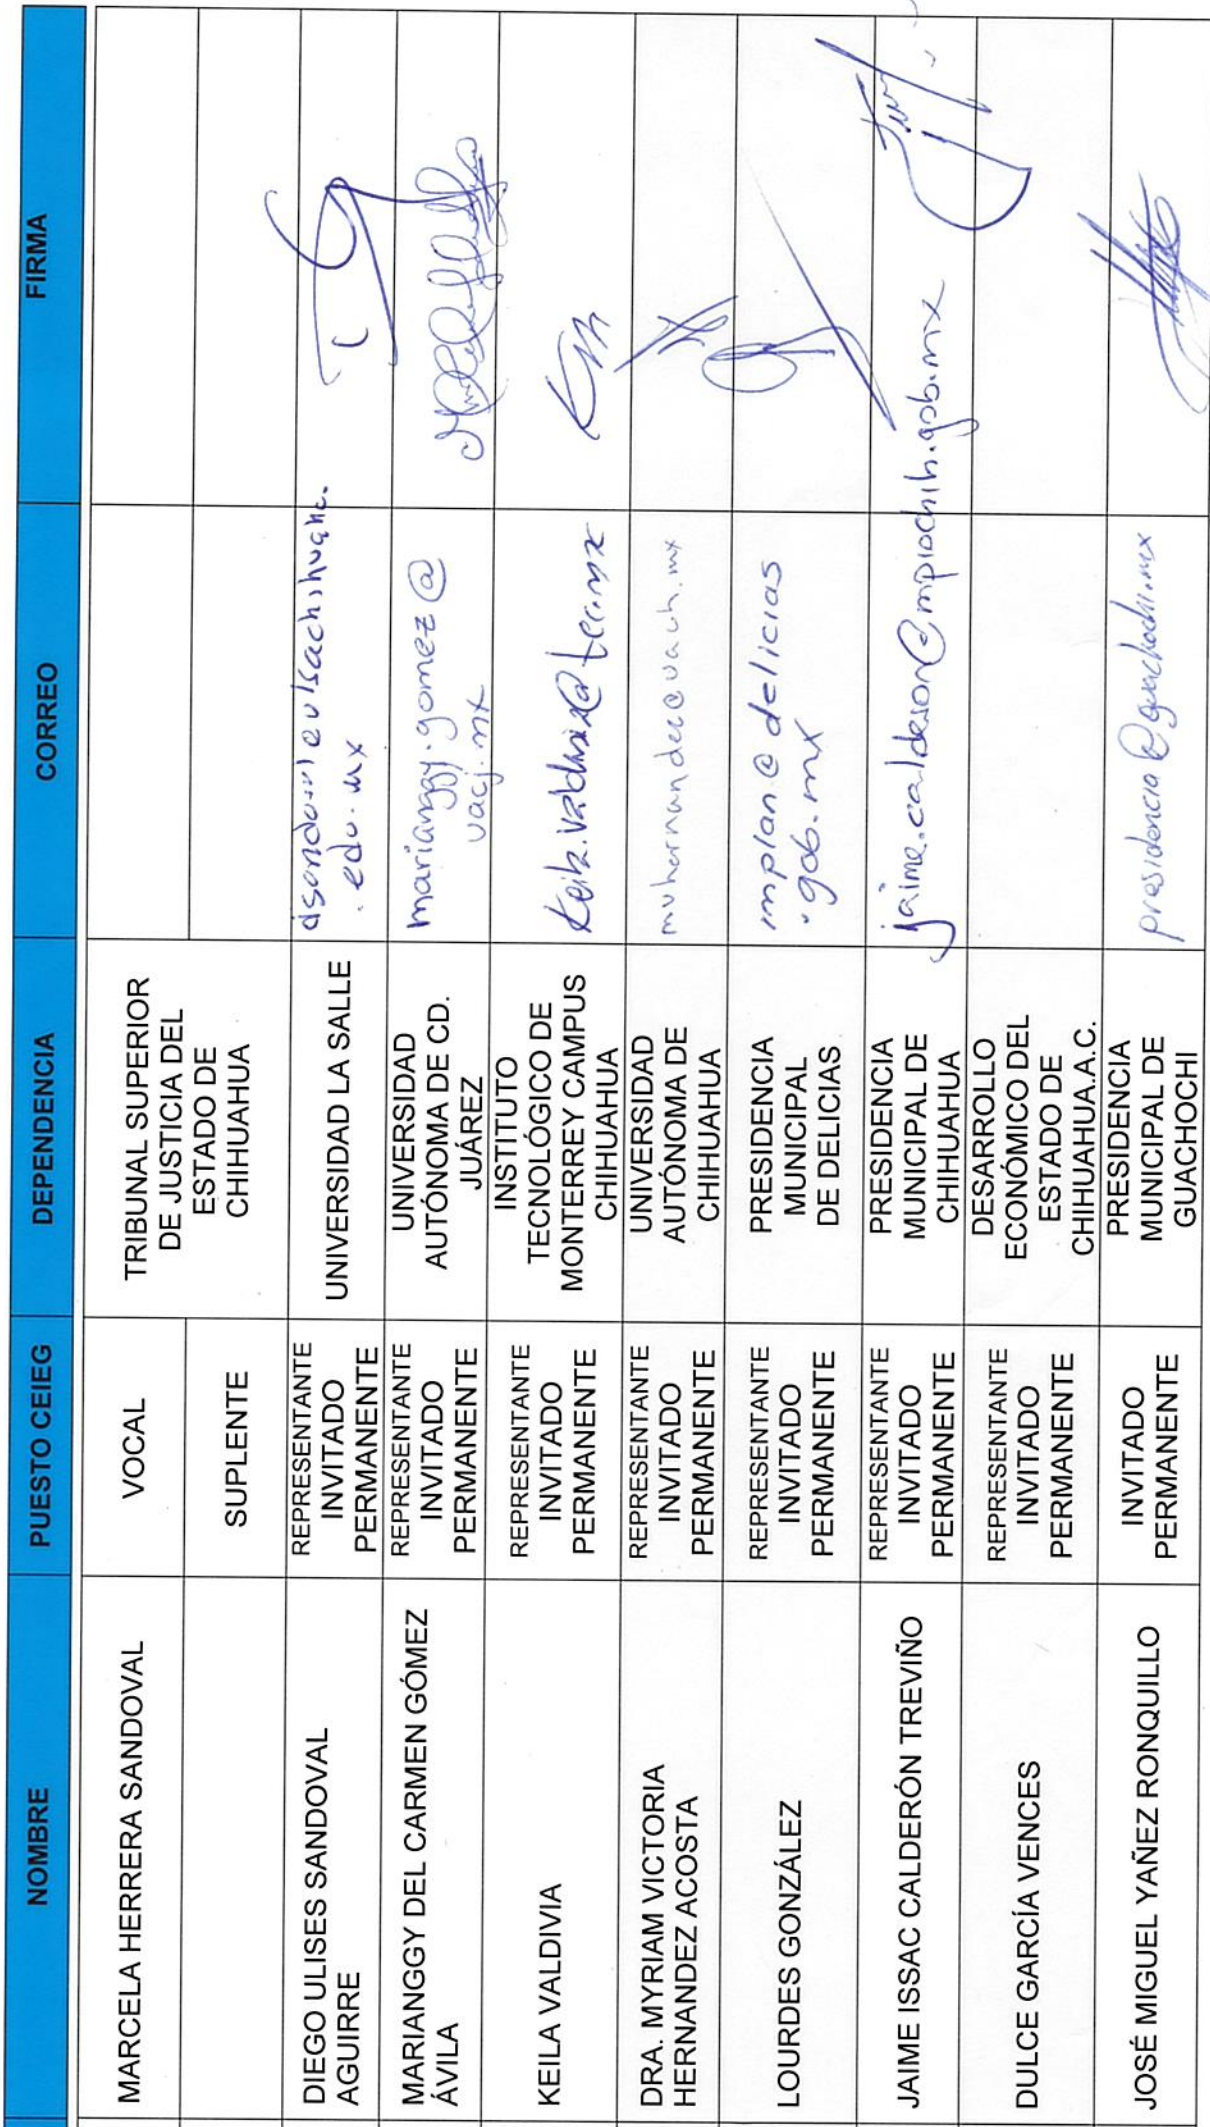 NOMBRE PUESTO CEIEG DEPENDENCIA CORREO FIRMA
MARCELA HERRERA SANDOVAL
VOCAL
TRIBUNAL SUPERIOR
DE JUSTICIA DEL
ESTADO DE
CHIHUAHUA
SUPLENTE
DIEGO ULISES SANDOVAL
AGUIRRE
REPRESENTANTE
INVITADO
PERMANENTE
UNIVERSIDAD LA SALLE
.edu.mx
MARIANGGY DEL CARMEN GÓMEZ
ÁVILA
REPRESENTANTE
INVITADO
PERMANENTE
UNIVERSIDAD
AUTÓNOMA DE CD.
JUÁREZ
marianggy.gomez@
uacj.mx
KEILA VALDIVIA
REPRESENTANTE
INVITADO
PERMANENTE
INSTITUTO
TECNOLÓGICO DE
MONTERREY CAMPUS
CHIHUAHUA
DRA. MYRIAM VICTORIA
HERNANDEZ ACOSTA
REPRESENTANTE
INVITADO
PERMANENTE
UNIVERSIDAD
AUTÓNOMA DE
CHIHUAHUA
LOURDES GONZÁLEZ
REPRESENTANTE
INVITADO
PERMANENTE
PRESIDENCIA
MUNICIPAL
DE DELICIAS
implan@delicias
.gob.mx
JAIME ISSAC CALDERÓN TREVIÑO
REPRESENTANTE
INVITADO
PERMANENTE
PRESIDENCIA
MUNICIPAL DE
CHIHUAHUA
jaime.calderon@mpiochih.gob.mx
DULCE GARCÍA VENCES
REPRESENTANTE
INVITADO
PERMANENTE
DESARROLLO
ECONÓMICO DEL
ESTADO DE
CHIHUAHUA.A.C.
JOSÉ MIGUEL YAÑEZ RONQUILLO
INVITADO
PERMANENTE
PRESIDENCIA
MUNICIPAL DE
GUACHOCHI
presidencia@guachochi.mx